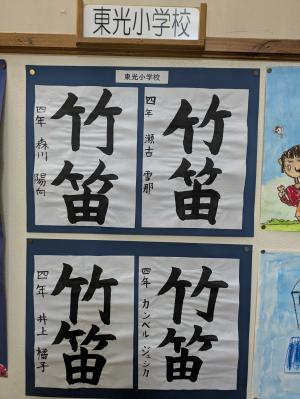 東光小学校
東光小学校
竹笛
四年 瀬古 雪那
竹笛
四年 森川 陽向
竹笛
四年 カンベル ジェシカ
竹笛
四年 井上 橘子